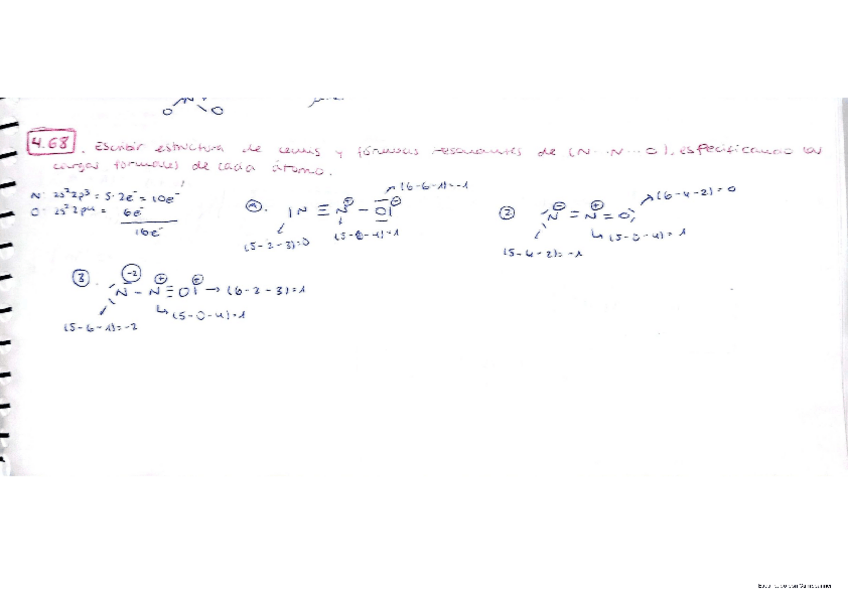 N +
O O
4.68. Escribir estructura de Lewis y fórmulas resonantes de (N··N···O), especificando las
cargas formales de cada átomo.
N: 2s²2p³ = 5·2e⁻ = 10e⁻
O: 2s²2p⁴ = 6e⁻
16e⁻
1. |N ≡ N⊕ – O|⊖ (6-6-1)=-1
(5-2-3)=0 (5-0-4)=1
2 N⊖ = N⊕ = O (6-4-2)=0
(5-4-2)=-1 (5-0-4)=1
3. N(-2) – N⊕ ≡ O|⊕ → (6-2-3)=1
(5-6-1)=-2 (5-0-4)=1